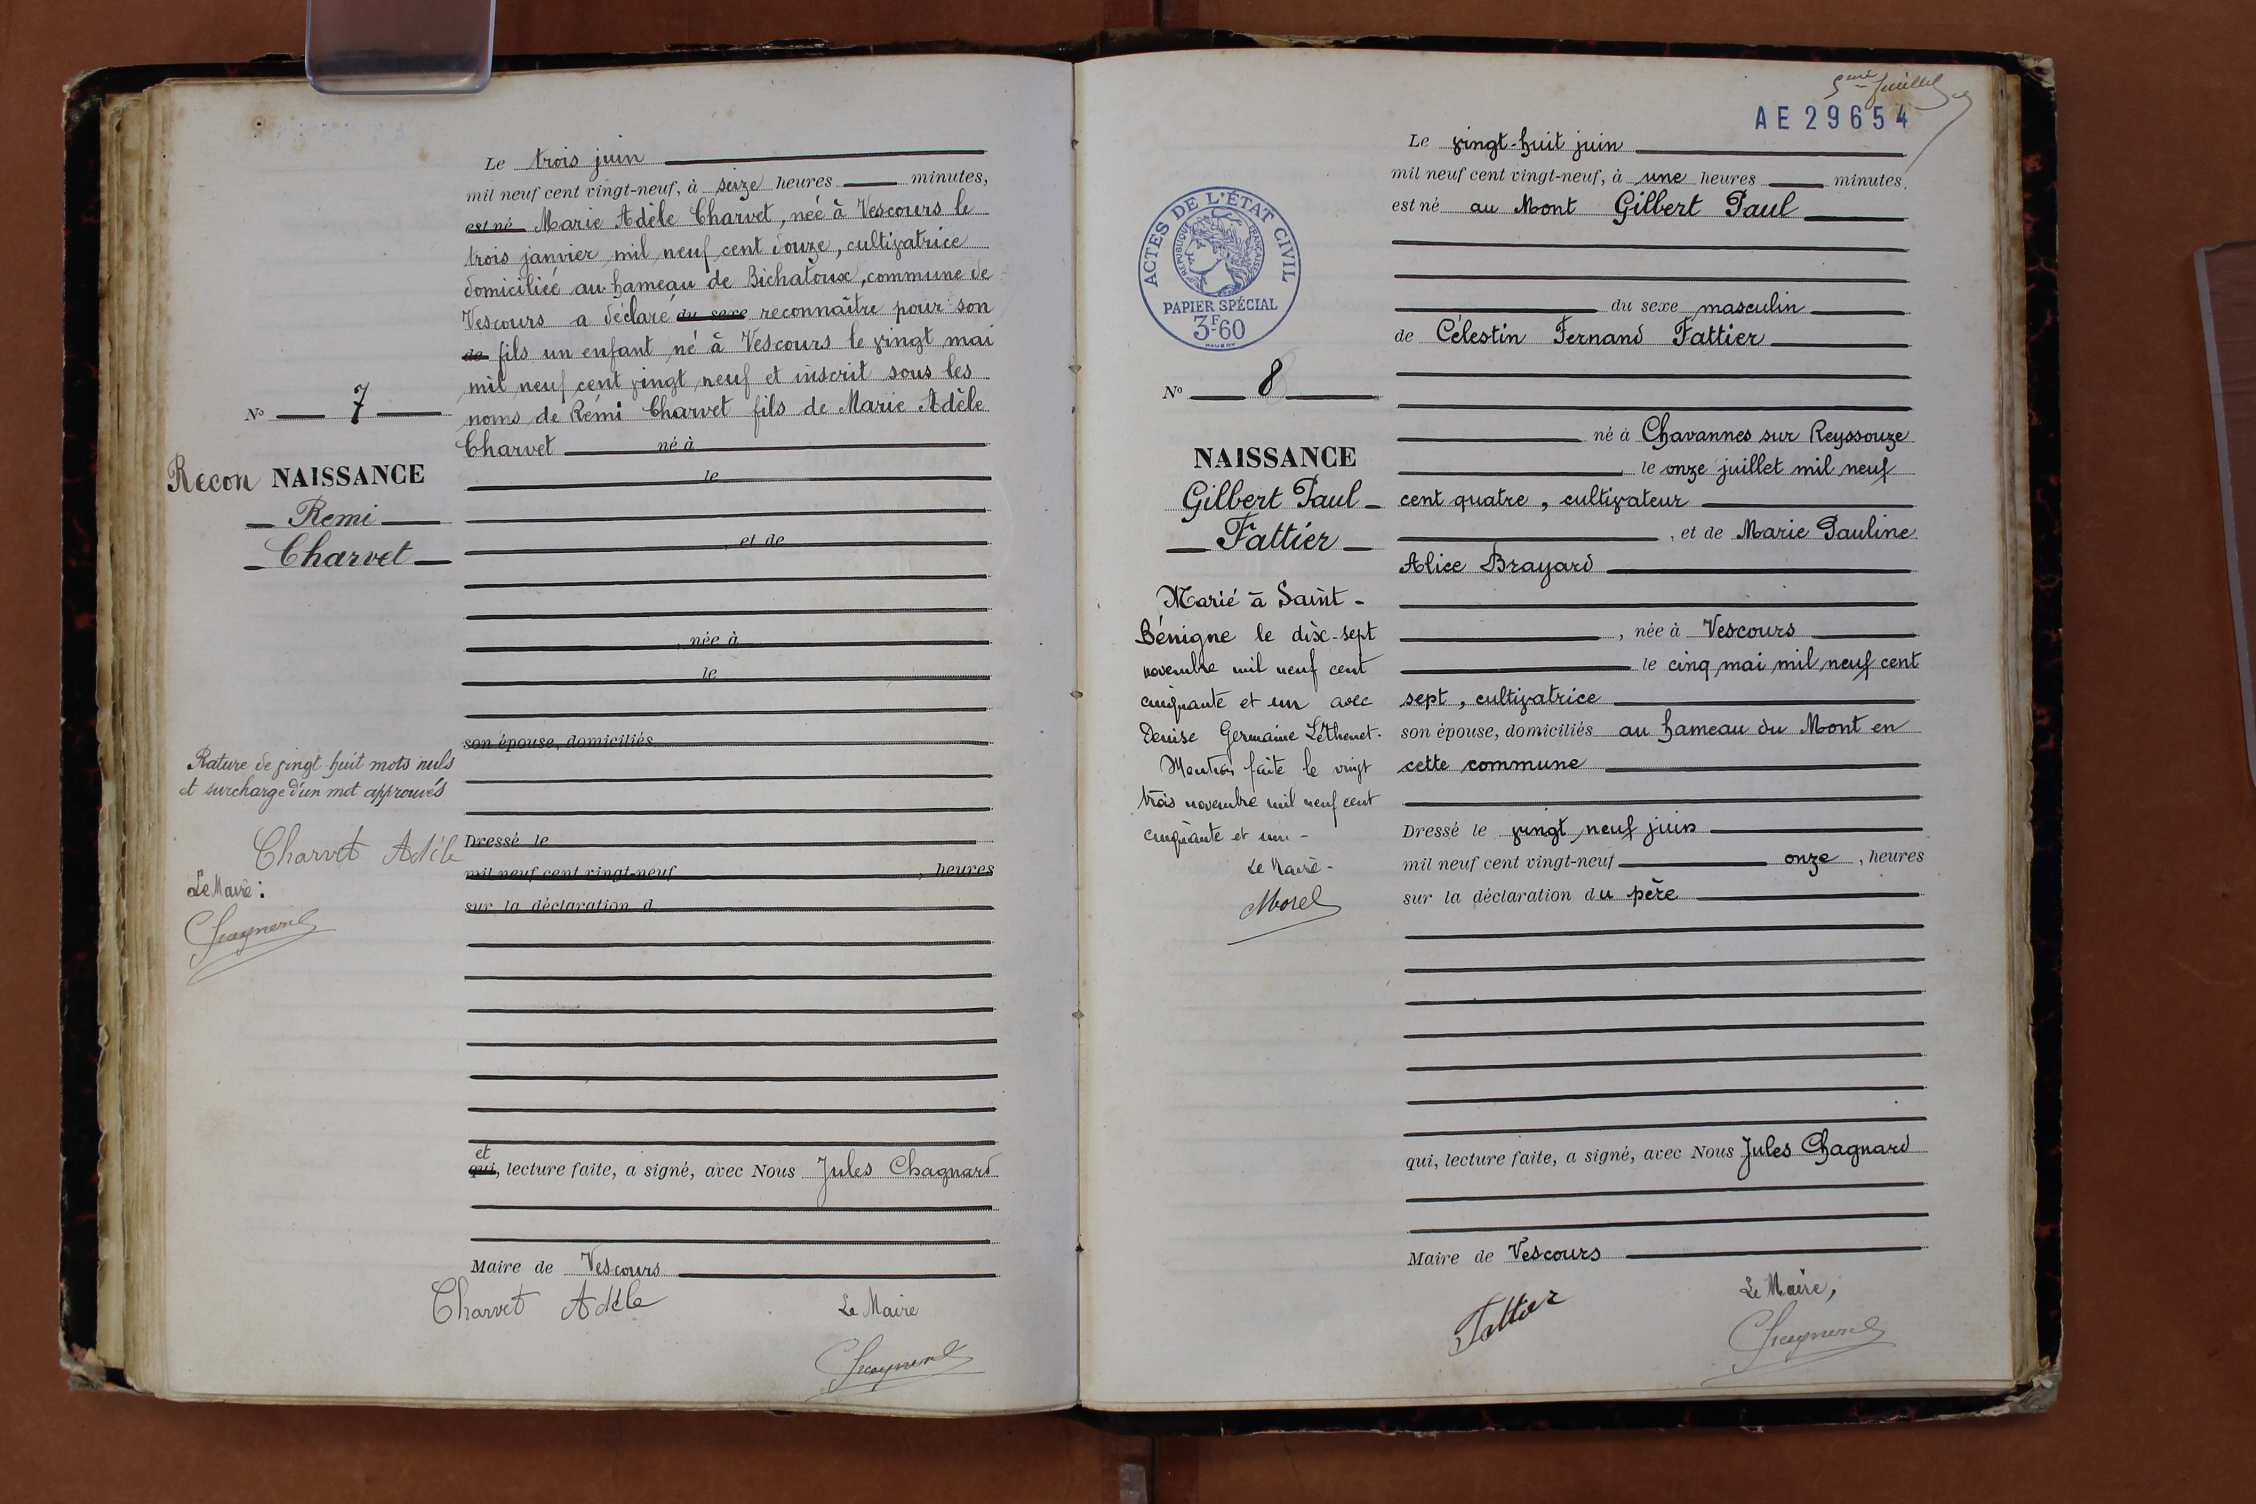 Le trois juin
mil neuf cent vingt-neuf, à seize heures minutes,
est né Marie Adèle Charvet, née à Vescours le
trois janvier mil neuf cent douze, cultivatrice
domiciliée au hameau de Bichatoux, commune de
Vescours a déclaré du sexe reconnaître pour son
de fils un enfant né à Vescours le vingt mai
mil neuf cent vingt neuf et inscrit sous les
noms de Rémi Charvet fils de Marie Adèle
Charvet né à
le
, et de
, née à
le
son épouse, domiciliés
Dressé le
mil neuf cent vingt-neuf , heures
sur la déclaration d
et
qui, lecture faite, a signé, avec Nous Jules Chagnard
Maire de Vescours
Charvet Adèle
Le Maire
Chagnard
No 7
Recon NAISSANCE
Remi
Charvet
Rature de vingt huit mots nuls
et surcharge d'un mot approuvés
Charvet Adèle
Le Maire :
Chagnard
5eme feuillet
AE 29654
Le vingt-huit juin
mil neuf cent vingt-neuf, à une heures minutes,
est né au Mont Gilbert Paul
du sexe masculin
de Célestin Fernand Fattier
né à Chavannes sur Reyssouze
le onze juillet mil neuf
cent quatre, cultivateur
, et de Marie Pauline
Alice Brayard
, née à Vescours
le cinq mai mil neuf cent
sept, cultivatrice
son épouse, domiciliés au hameau du Mont en
cette commune
Dressé le vingt neuf juin
mil neuf cent vingt-neuf onze , heures
sur la déclaration du père
qui, lecture faite, a signé, avec Nous Jules Chagnard
Maire de Vescours
Fattier
Le Maire,
Chagnard
ACTES DE L'ÉTAT CIVIL
RÉPUBLIQUE FRANÇAISE
PAPIER SPÉCIAL
3F.60
No 8
NAISSANCE
Gilbert Paul
Fattier
Marié à Saint-
Bénigne le dix-sept
novembre mil neuf cent
cinquante et un avec
Denise Germaine Léthenet.
Mention faite le vingt
trois novembre mil neuf cent
cinquante et un -
Le Maire -
Morel